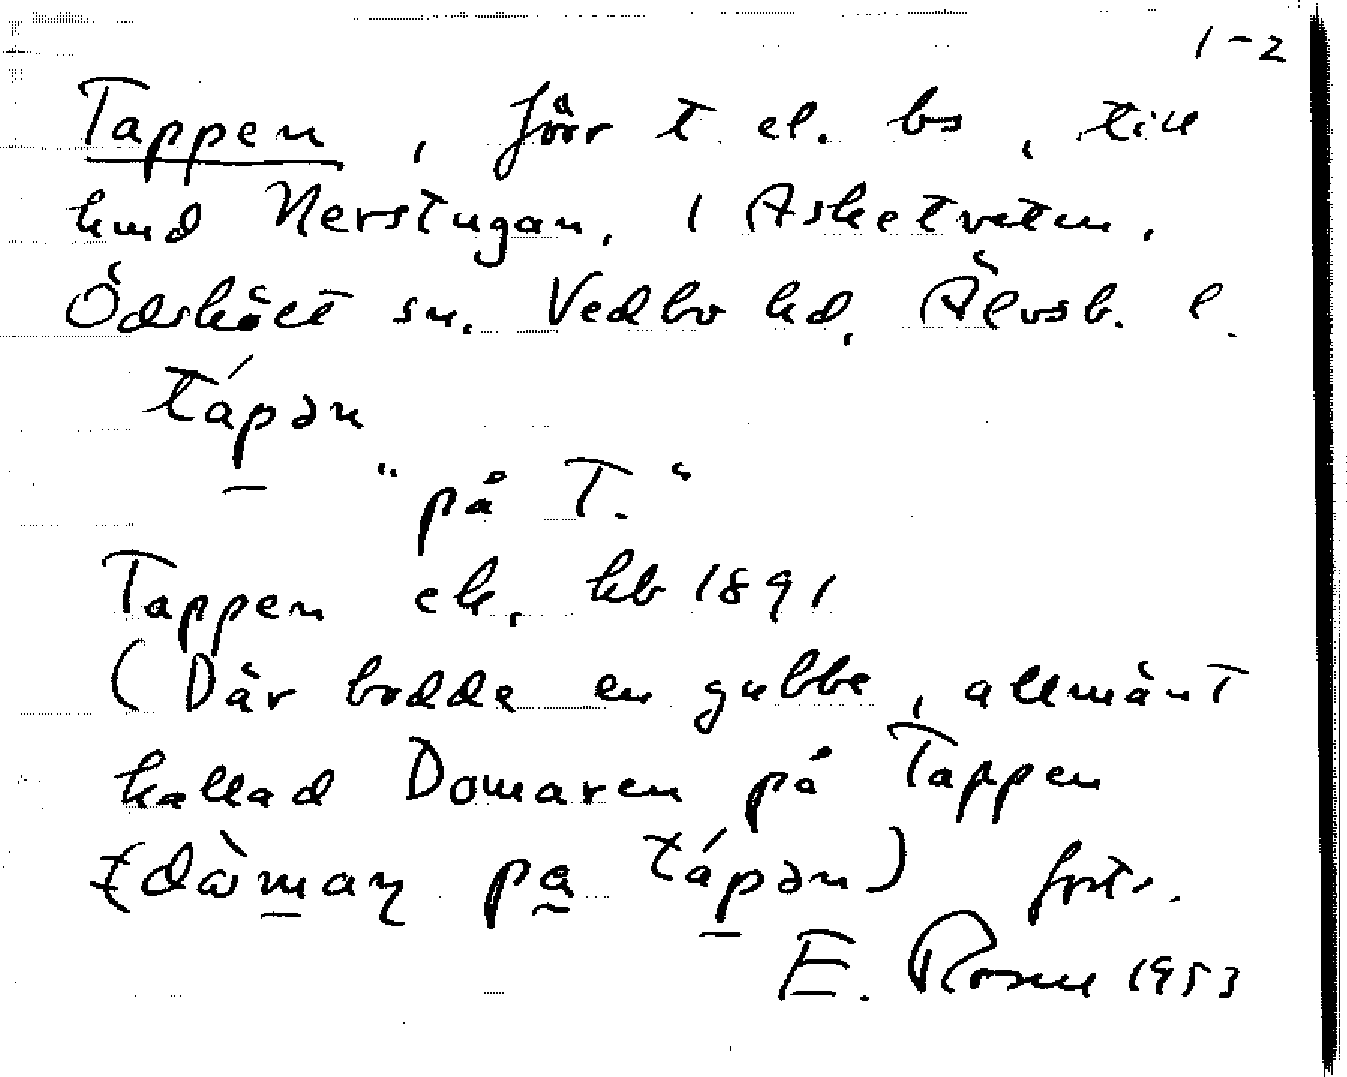 1-2
Tappen, förr t. el. bs, till
hmd Nerstugan, i Asketveten,
Ödskölt sn. Vedbo hd, Älvsb. l.
tápən
"på T."
Tappen ek. kb 1891
(Där bodde en gubbe, allmänt
kallad Domaren på Tappen
pa tápən) forts.
E. Rosen 1953